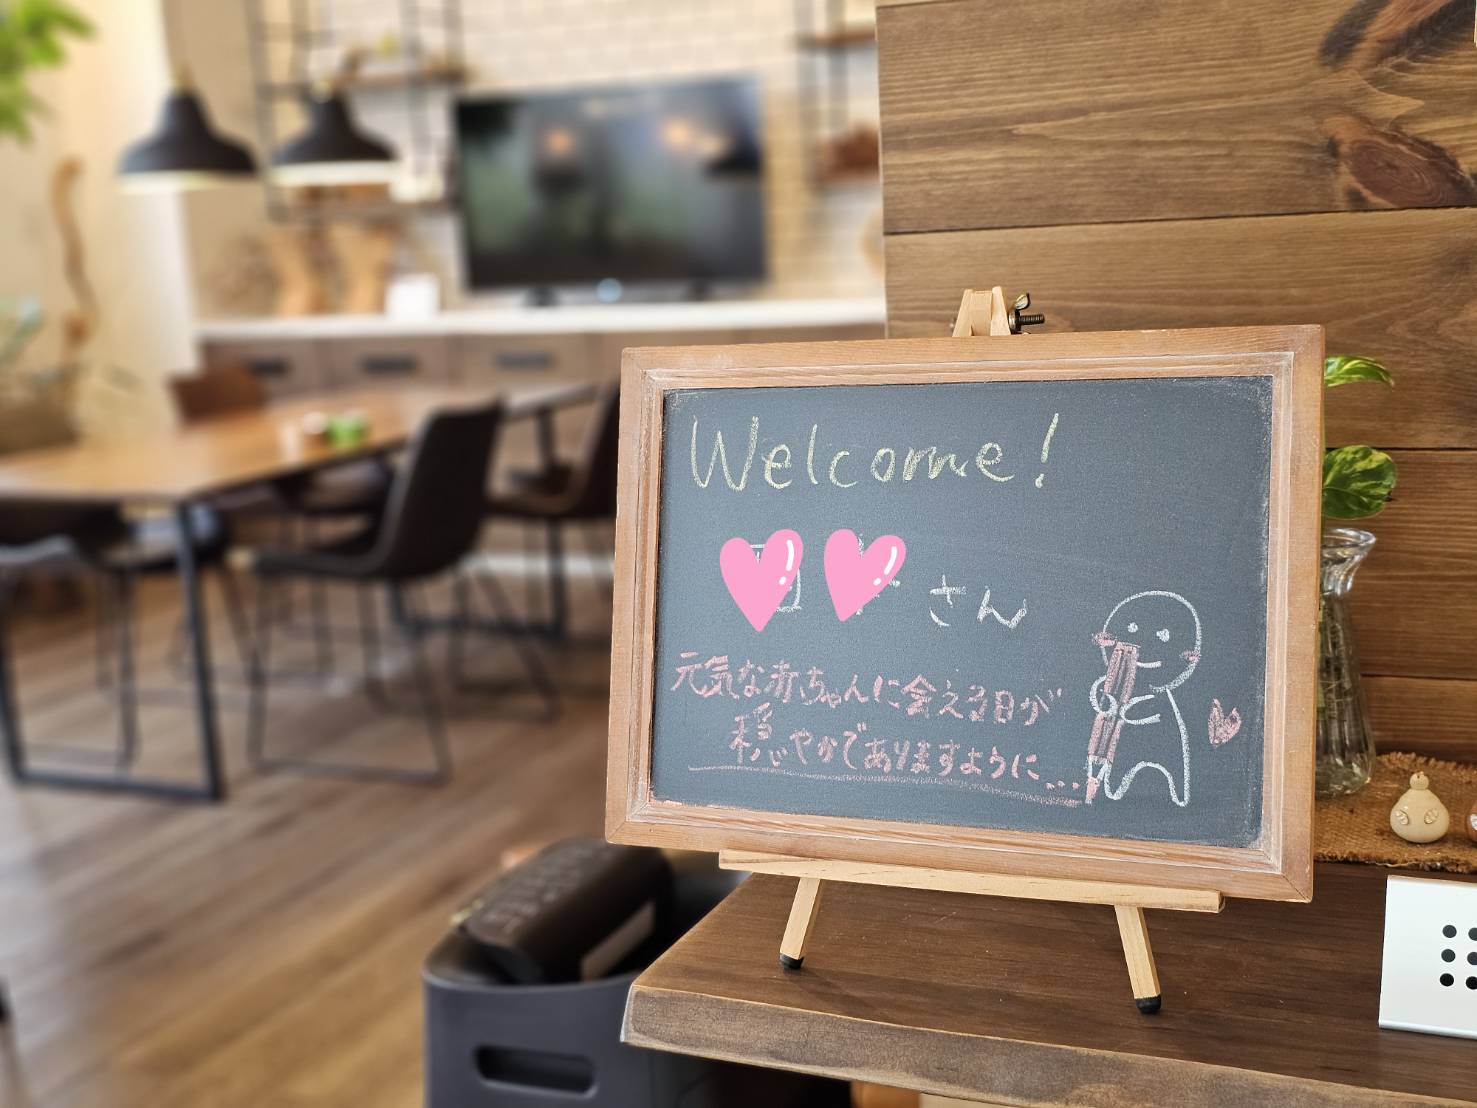 Welcome!
さん
元気な赤ちゃんに会える日が
穏やかでありますように...